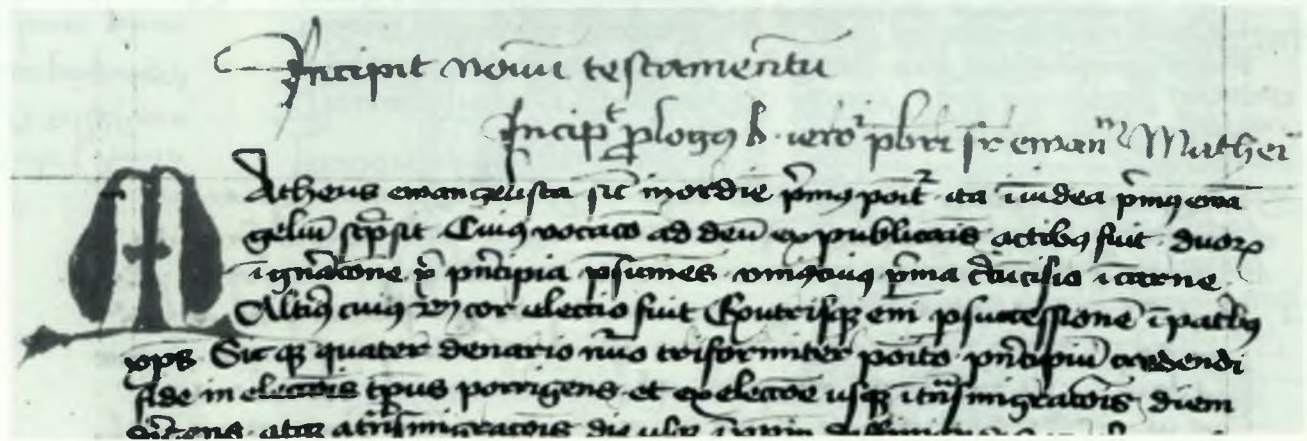 Incipit nouū testamentū
Incipt plogus b. iero pbri sr ewanm Mathei
Matheus ewangelista sic inordīe pmus poitr ita ī iudea pmus ewā
geliū scpsit Cuius vocaco ad deū ex publicais actibus fuit duorꝫ
ī gnācone xpi pncipia psumēs vnius cuius pma ccūcisio ī carne
Altius cuius scdm cor electio fuit Ex utrisqꝫ em
xps Sicqꝫ quater denario nuo triformiter poito pncipiū credendi
fide in electois tpus porrigens et ex electoe usqꝫ ī trāsmigracois diem